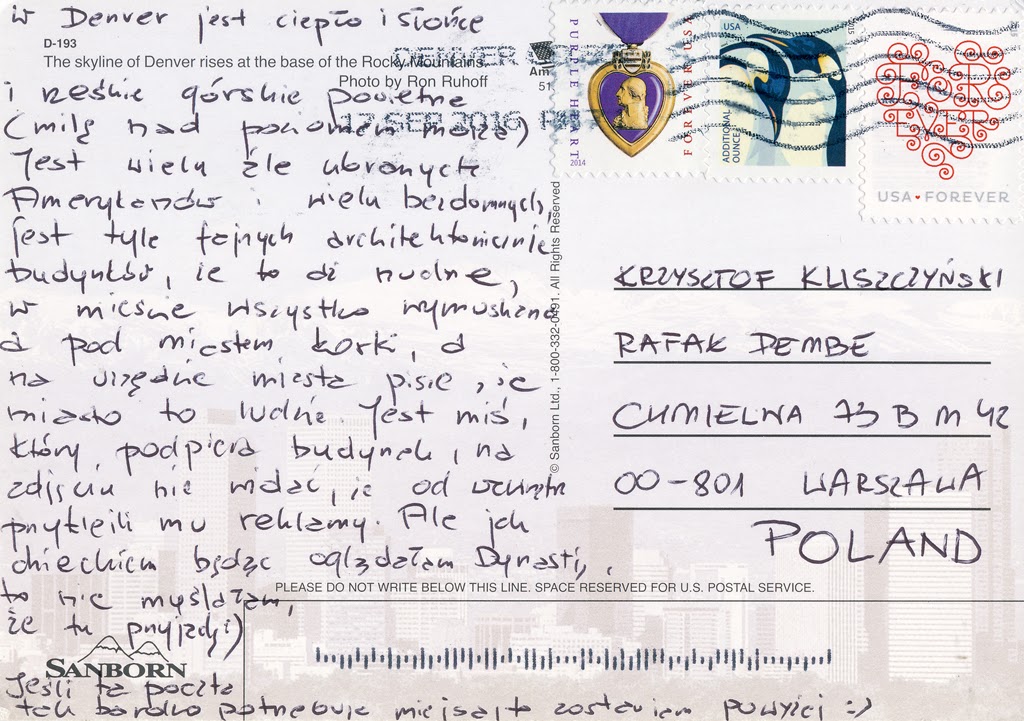 w Denver jest ciepło i słońce
D-193
The skyline of Denver rises at the base of the Rocky Mountains.
Photo by Ron Ruhoff
i rześkie górskie powietrze
(milę nad poziomem morza)
Jest wielu źle ubranych
Amerykanów i wielu bezdomnych,
jest tyle fajnych architektonicznie
budynków, że to aż nudne,
w mieście wszystko wymuskane
a pod miastem korki, a
na urzędzie miasta pisze, że
miasto to ludzie. Jest miś,
który podpiera budynek, na
zdjęciu nie widać, że od wewnątrz
przykleili mu reklamy. Ale jak
dzieckiem będąc oglądałam Dynastię,
to nie myślałam,
że tu przyjadę;)
SANBORN
Jeśli ta poczta
tak bardzo potrzebuje miejsca, to zostawiam powyżej :)
DENVER
17 SEP 2016
51
© Sanborn Ltd., 1-800-332-0491, All Rights Reserved
PURPLE HEART
FOREVER USA
2014
USA
ADDITIONAL OUNCE
2015
FOREVER
USA FOREVER
KRZYSZTOF KLISZCZYŃSKI
RAFAŁ DEMBE
CHMIELNA 73 B M 42
00-801 WARSZAWA
POLAND
PLEASE DO NOT WRITE BELOW THIS LINE. SPACE RESERVED FOR U.S. POSTAL SERVICE.